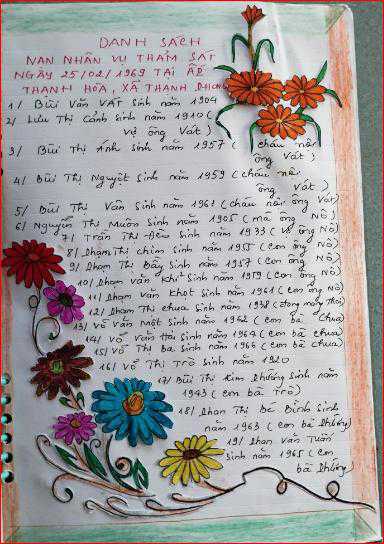 DANH SÁCH
NẠN NHÂN VỤ THẢM SÁT
NGÀY 25/02/1969 TẠI ẤP
THẠNH HÒA, XÃ THẠNH PHONG
1/ Bùi Văn Vát sinh năm 1904
2/ Lưu Thị Cảnh sinh năm 1910 (
vợ ông Vát)
3/ Bùi Thị Ánh sinh năm 1957 ( cháu nội
ông Vát)
4/ Bùi Thị Nguyệt sinh năm 1959 (cháu nội
ông Vát)
5/ Bùi Thị Vân sinh năm 1961 (cháu nội ông Vát)
6/ Nguyễn Thị Muôn sinh năm 1905 (má ông Nò)
7/ Trần Thị sinh năm 1933 (vợ ông Nò)
8/ Phạm Thị Chìm sinh năm 1955 (con ông Nò)
9/ Phạm Thị Bảy sinh năm 1957 (con ông Nò)
10/ Phạm Văn Khi sinh năm 1959 (con ông Nò)
11/ Phạm Văn Khọt sinh năm 1961 (con ông Nò)
12/ Phạm Thị Chưa sinh năm 1938 (đang mang thai)
13/ Võ Văn Một sinh năm 1962 (con bà Chưa)
14/ Võ Văn Hai sinh năm 1964 (con bà Chưa)
15/ Võ Thị Ba sinh năm 1966 (con bà Chưa)
16/ Võ Thị Trò sinh năm 1920
17/ Bùi Thị Kim Phướng sinh năm
1943 (con bà Trò)
18/ Phan Thị Bé Bình sinh
năm 1963 (con bà Phướng)
19/ Phan Văn Tuấn
sinh năm 1965 (con
bà Phướng)